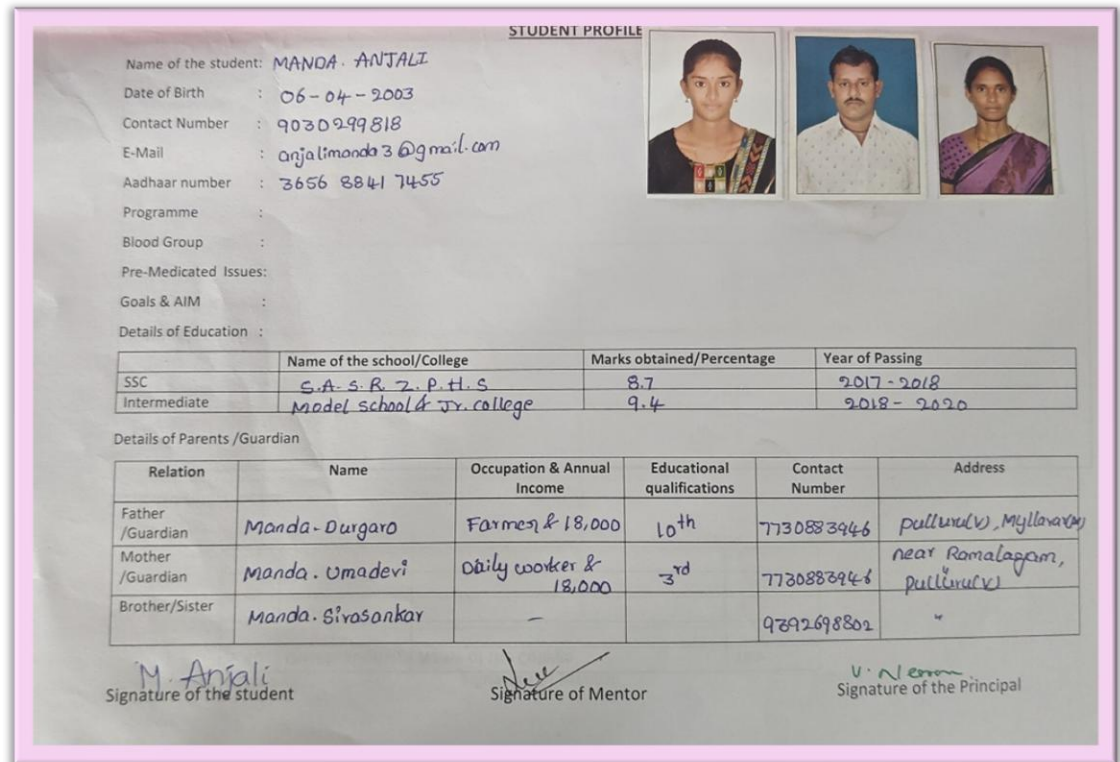 STUDENT PROFILE
Name of the student: MANDA. ANJALI
Date of Birth : 06-04-2003
Contact Number : 9030299818
E-Mail : anjalimanda3@gmail.com
Aadhaar number : 3656 8841 7455
Programme :
Blood Group :
Pre-Medicated Issues:
Goals & AIM :
Details of Education :
Name of the school/College Marks obtained/Percentage Year of Passing
SSC S.A.S.R. Z.P.H.S 8.7 2017-2018
Intermediate Model school & Jr. college 9.4 2018-2020
Details of Parents /Guardian
Relation Name Occupation & Annual Income Educational qualifications Contact Number Address
Father /Guardian Manda-Durgaro Farmer & 18,000 10th 7730883946 pulluru(v), Myllavar(M)
Mother /Guardian Manda. Umadevi Daily worker & 18,000 3rd 7730883946 near Ramalagam, pulluru(v)
Brother/Sister Manda. Sivasankar - 9392698802 "
M. Anjali
Signature of the student Signature of Mentor Signature of the Principal